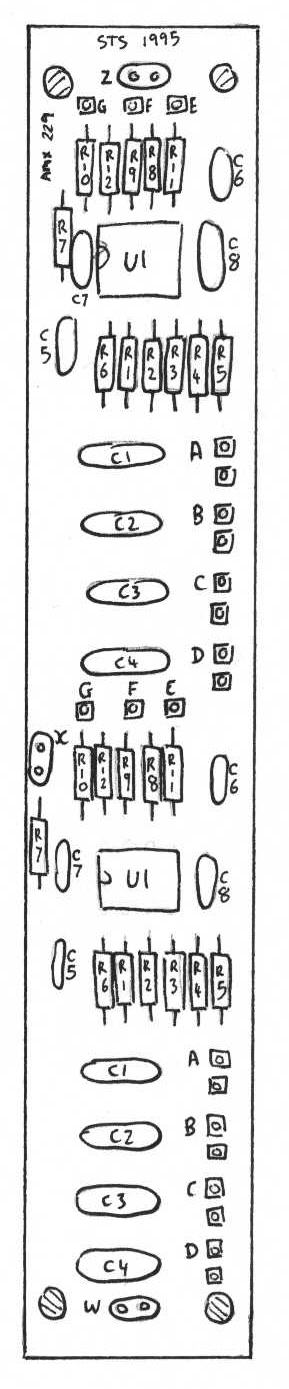 STS 1995
Z
G F E
AMX 229
R10 R12 R9 R8 R11
C6
R7
C7
U1
C8
C5
R6 R1 R2 R3 R4 R5
C1
A
C2
B
C3
C
C4
D
G F E
X
R10 R12 R9 R8 R11
C6
R7
C7
U1
C8
C5
R6 R1 R2 R3 R4 R5
C1
A
C2
B
C3
C
C4
D
W